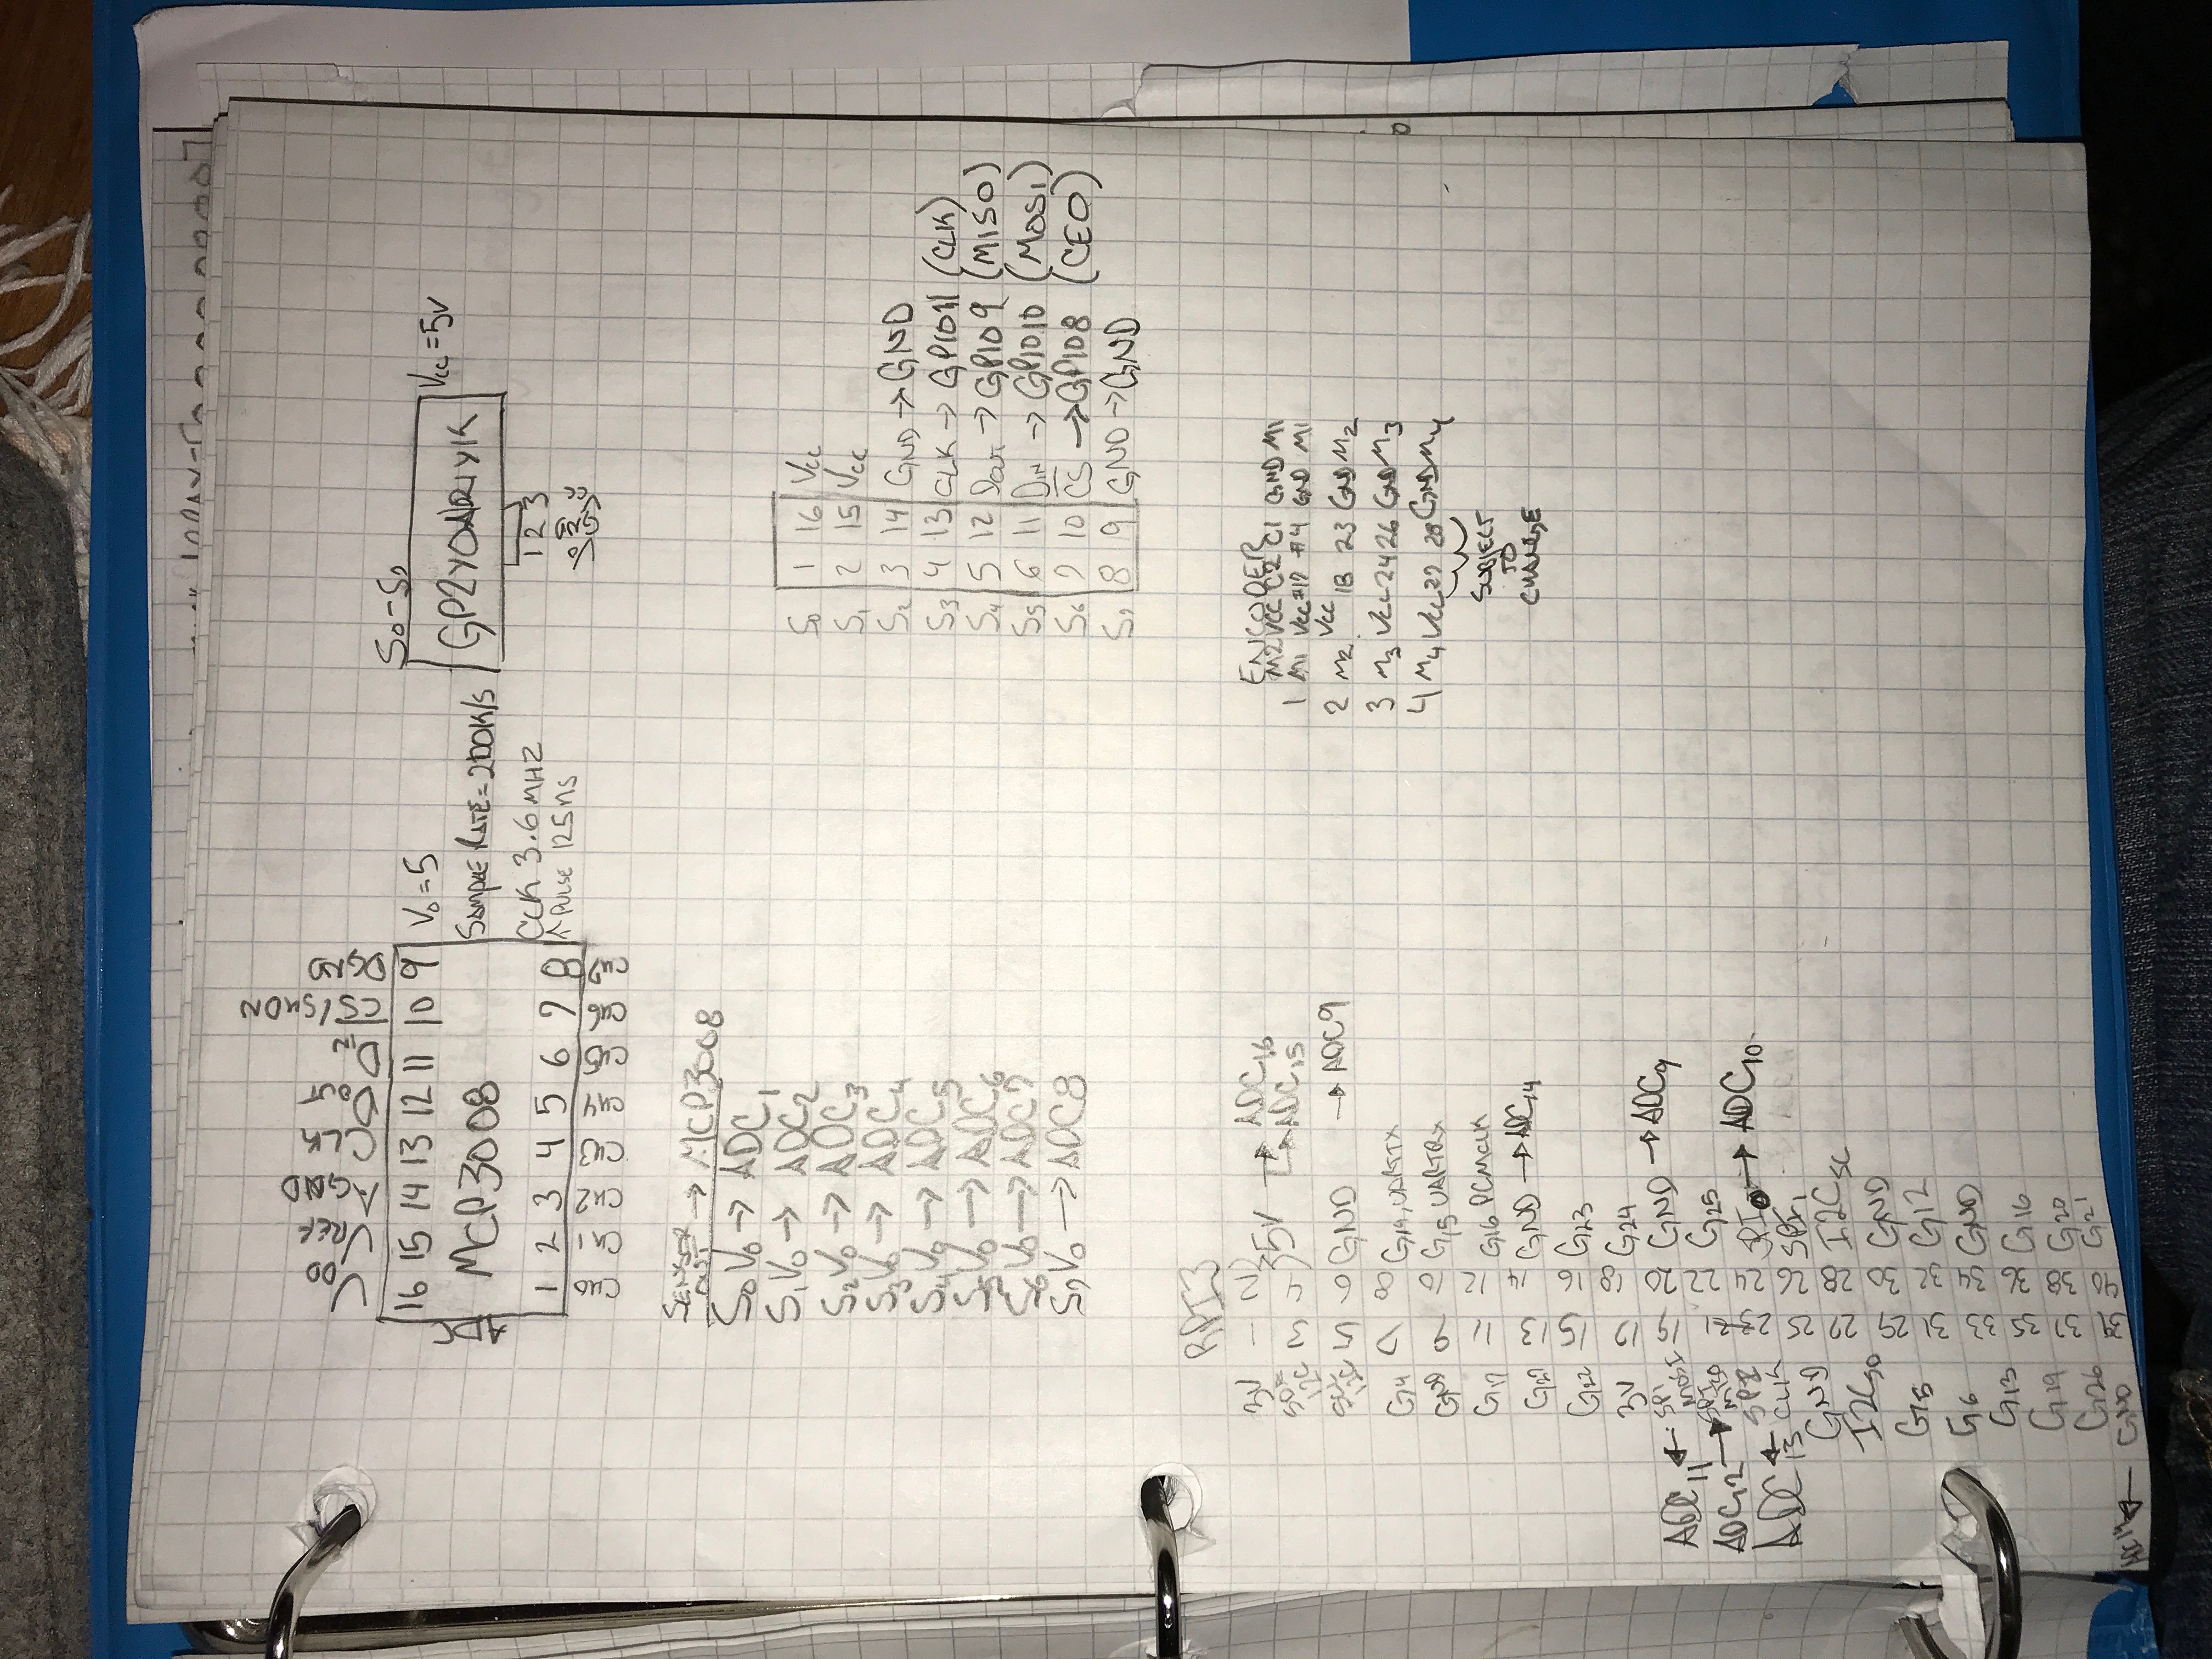 VDD VREF AGND CLK DOUT DIN CS/SHDN DGND
16 15 14 13 12 11 10 9
ADC
MCP3008
1 2 3 4 5 6 7 8
CH0 CH1 CH2 CH3 CH4 CH5 CH6 CH7
V0 = 5
SAMPLE RATE = 200K/S
CLK 3.6 MHZ
↑ PULSE 125ns
S0 - S7
GP2Y0A21YK
VCC = 5V
1 2 3
V0 GND VCC
SENSOR → MCP3008
S0 V0 → ADC1
S1 V0 → ADC2
S2 V0 → ADC3
S3 V0 → ADC4
S4 V0 → ADC5
S5 V0 → ADC6
S6 V0 → ADC7
S7 V0 → ADC8
S0 1 16 VCC
S1 2 15 VCC
S2 3 14 GND → GND
S3 4 13 CLK → GPIO11 (CLK)
S4 5 12 DOUT → GPIO9 (MISO)
S5 6 11 DIN → GPIO10 (MOSI)
S6 7 10 CS → GPIO8 (CE0)
S7 8 9 GND → GND
RPI3
3V 1 2 5V → ADC16
SDA I2C 3 4 → ADC15
SCL I2C 5 6 GND → ADC9
G4 7 8 G14, UARTTX
GND 9 10 G15 UARTRX
G17 11 12 G16 PCMCLK
G27 13 14 GND → ADC14
G22 15 16 G23
3V 17 18 G24
ADC11 ← SPI MOSI 19 20 GND → ADC9
ADC12 → SPI MISO 21 22 G25
ADC13 ← SPI CLK 23 24 SPI0 → ADC10
GND 25 26 SPI1
I2CSD 27 28 I2CSC
G5 29 30 GND
G6 31 32 G12
G13 33 34 GND
G19 35 36 G16
G26 37 38 G20
ADC14 ← GND 39 40 G21
ENCODER
M2 VCC C2 C1 GND M1
1 M1 VCC #17 #4 GND M1
2 M2 VCC 18 23 GND M2
3 M3 VCC 24 26 GND M3
4 M4 VCC 27 28 GND M4
SUBJECT
TO
CHANGE